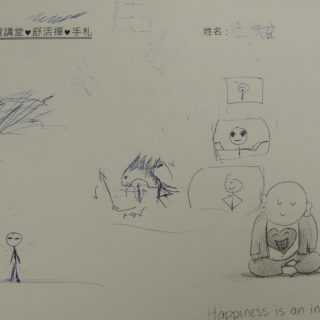 講堂♥舒活禪♥手札
姓名：
Happiness is an in